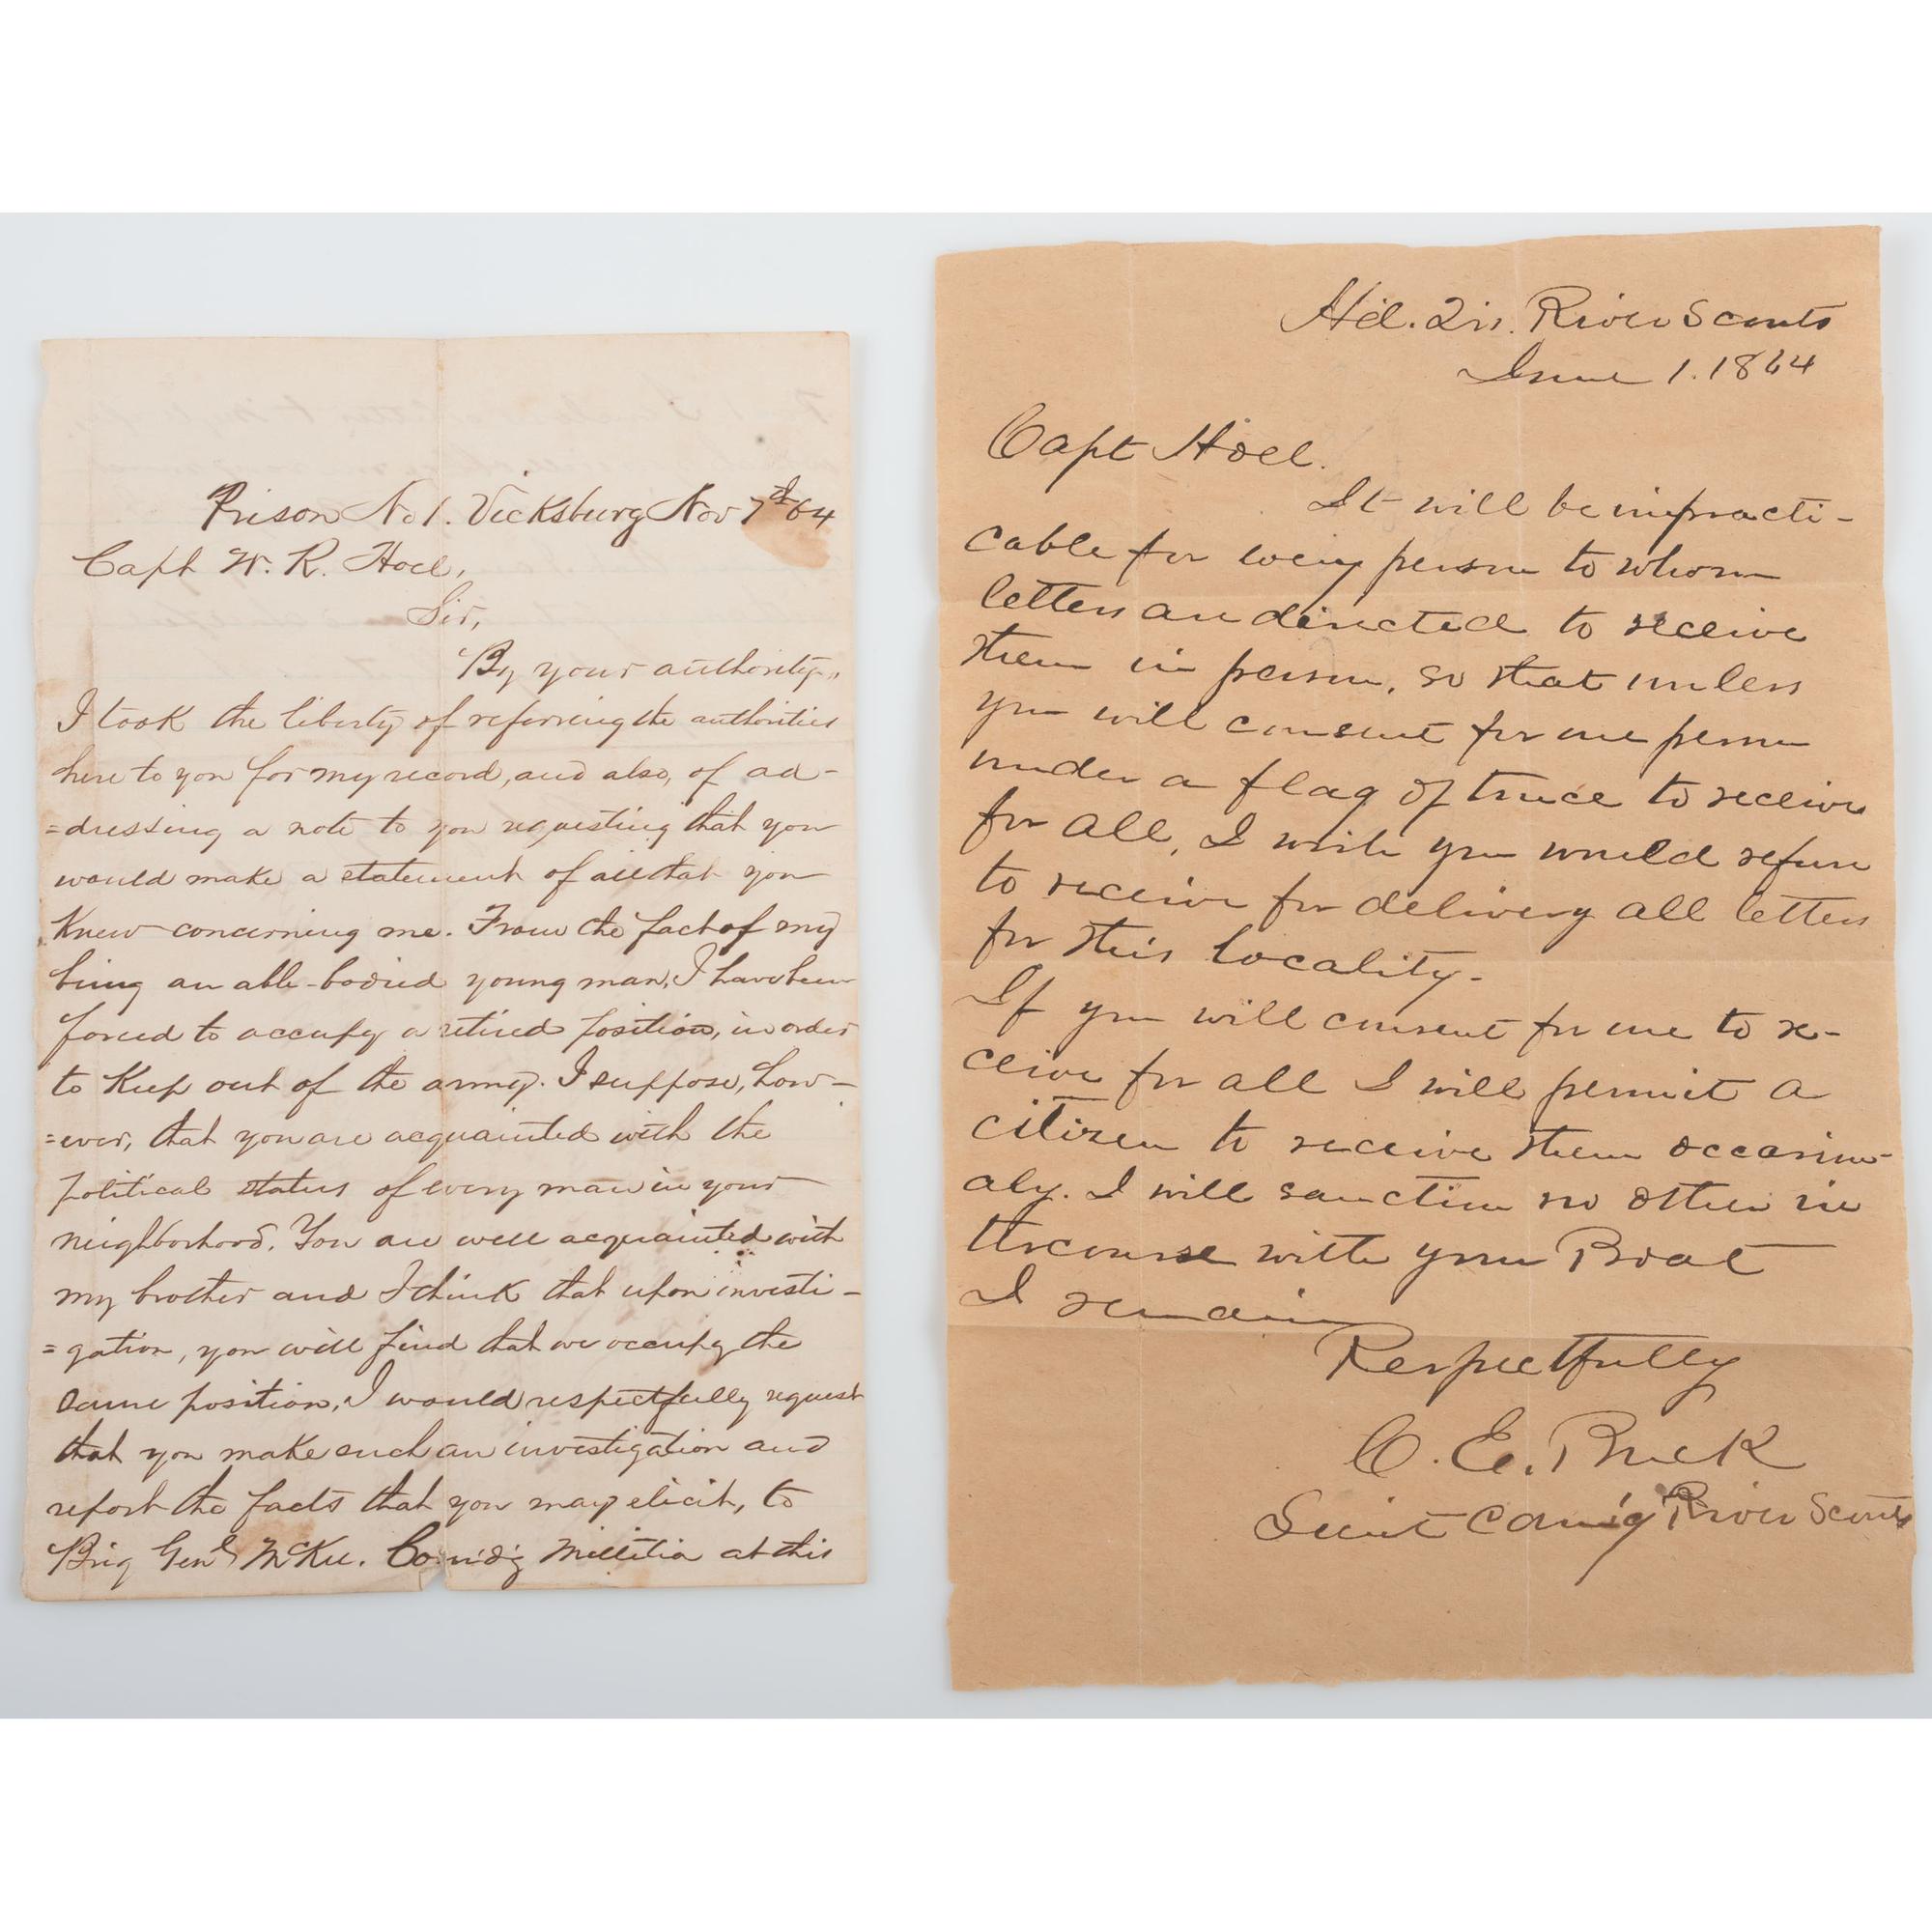 Prison No 1. Vicksburg Nov 7th 64
Capt W. R. Hoel,
Sir,
By your authority,
I took the liberty of referring the authorities
here to you for my record, and also, of ad-
=dressing a note to you requesting that you
would make a statement of all that you
knew concerning me. From the fact of my
being an able-bodied young man, I have been
forced to occupy a retired position, in order
to keep out of the army. I suppose, how-
=ever, that you are acquainted with the
political status of every man in your
neighborhood. You are well acquainted with
my brother and I think that upon investi-
=gation, you will find that we occupy the
same position, I would respectfully request
that you make such an investigation and
report the facts that you may elicit, to
Brig Genl McKee. Comdg Millitia at this
Hd. Qrs. River Scouts
June 1. 1864
Capt Hoel.
It will be impracti-
cable for every person to whom
letters are directed to receive
them in person, so that unless
you will consent for one person
under a flag of truce to receive
for all, I wish you would refuse
to receive for delivery all letters
for this locality.
If you will consent for one to re-
ceive for all I will permit a
citizen to receive them occasion-
aly. I will sanction no other in
tercourse with your Boat
I remain
Respectfully
C. E. Buck
Lieut Comg River Scouts